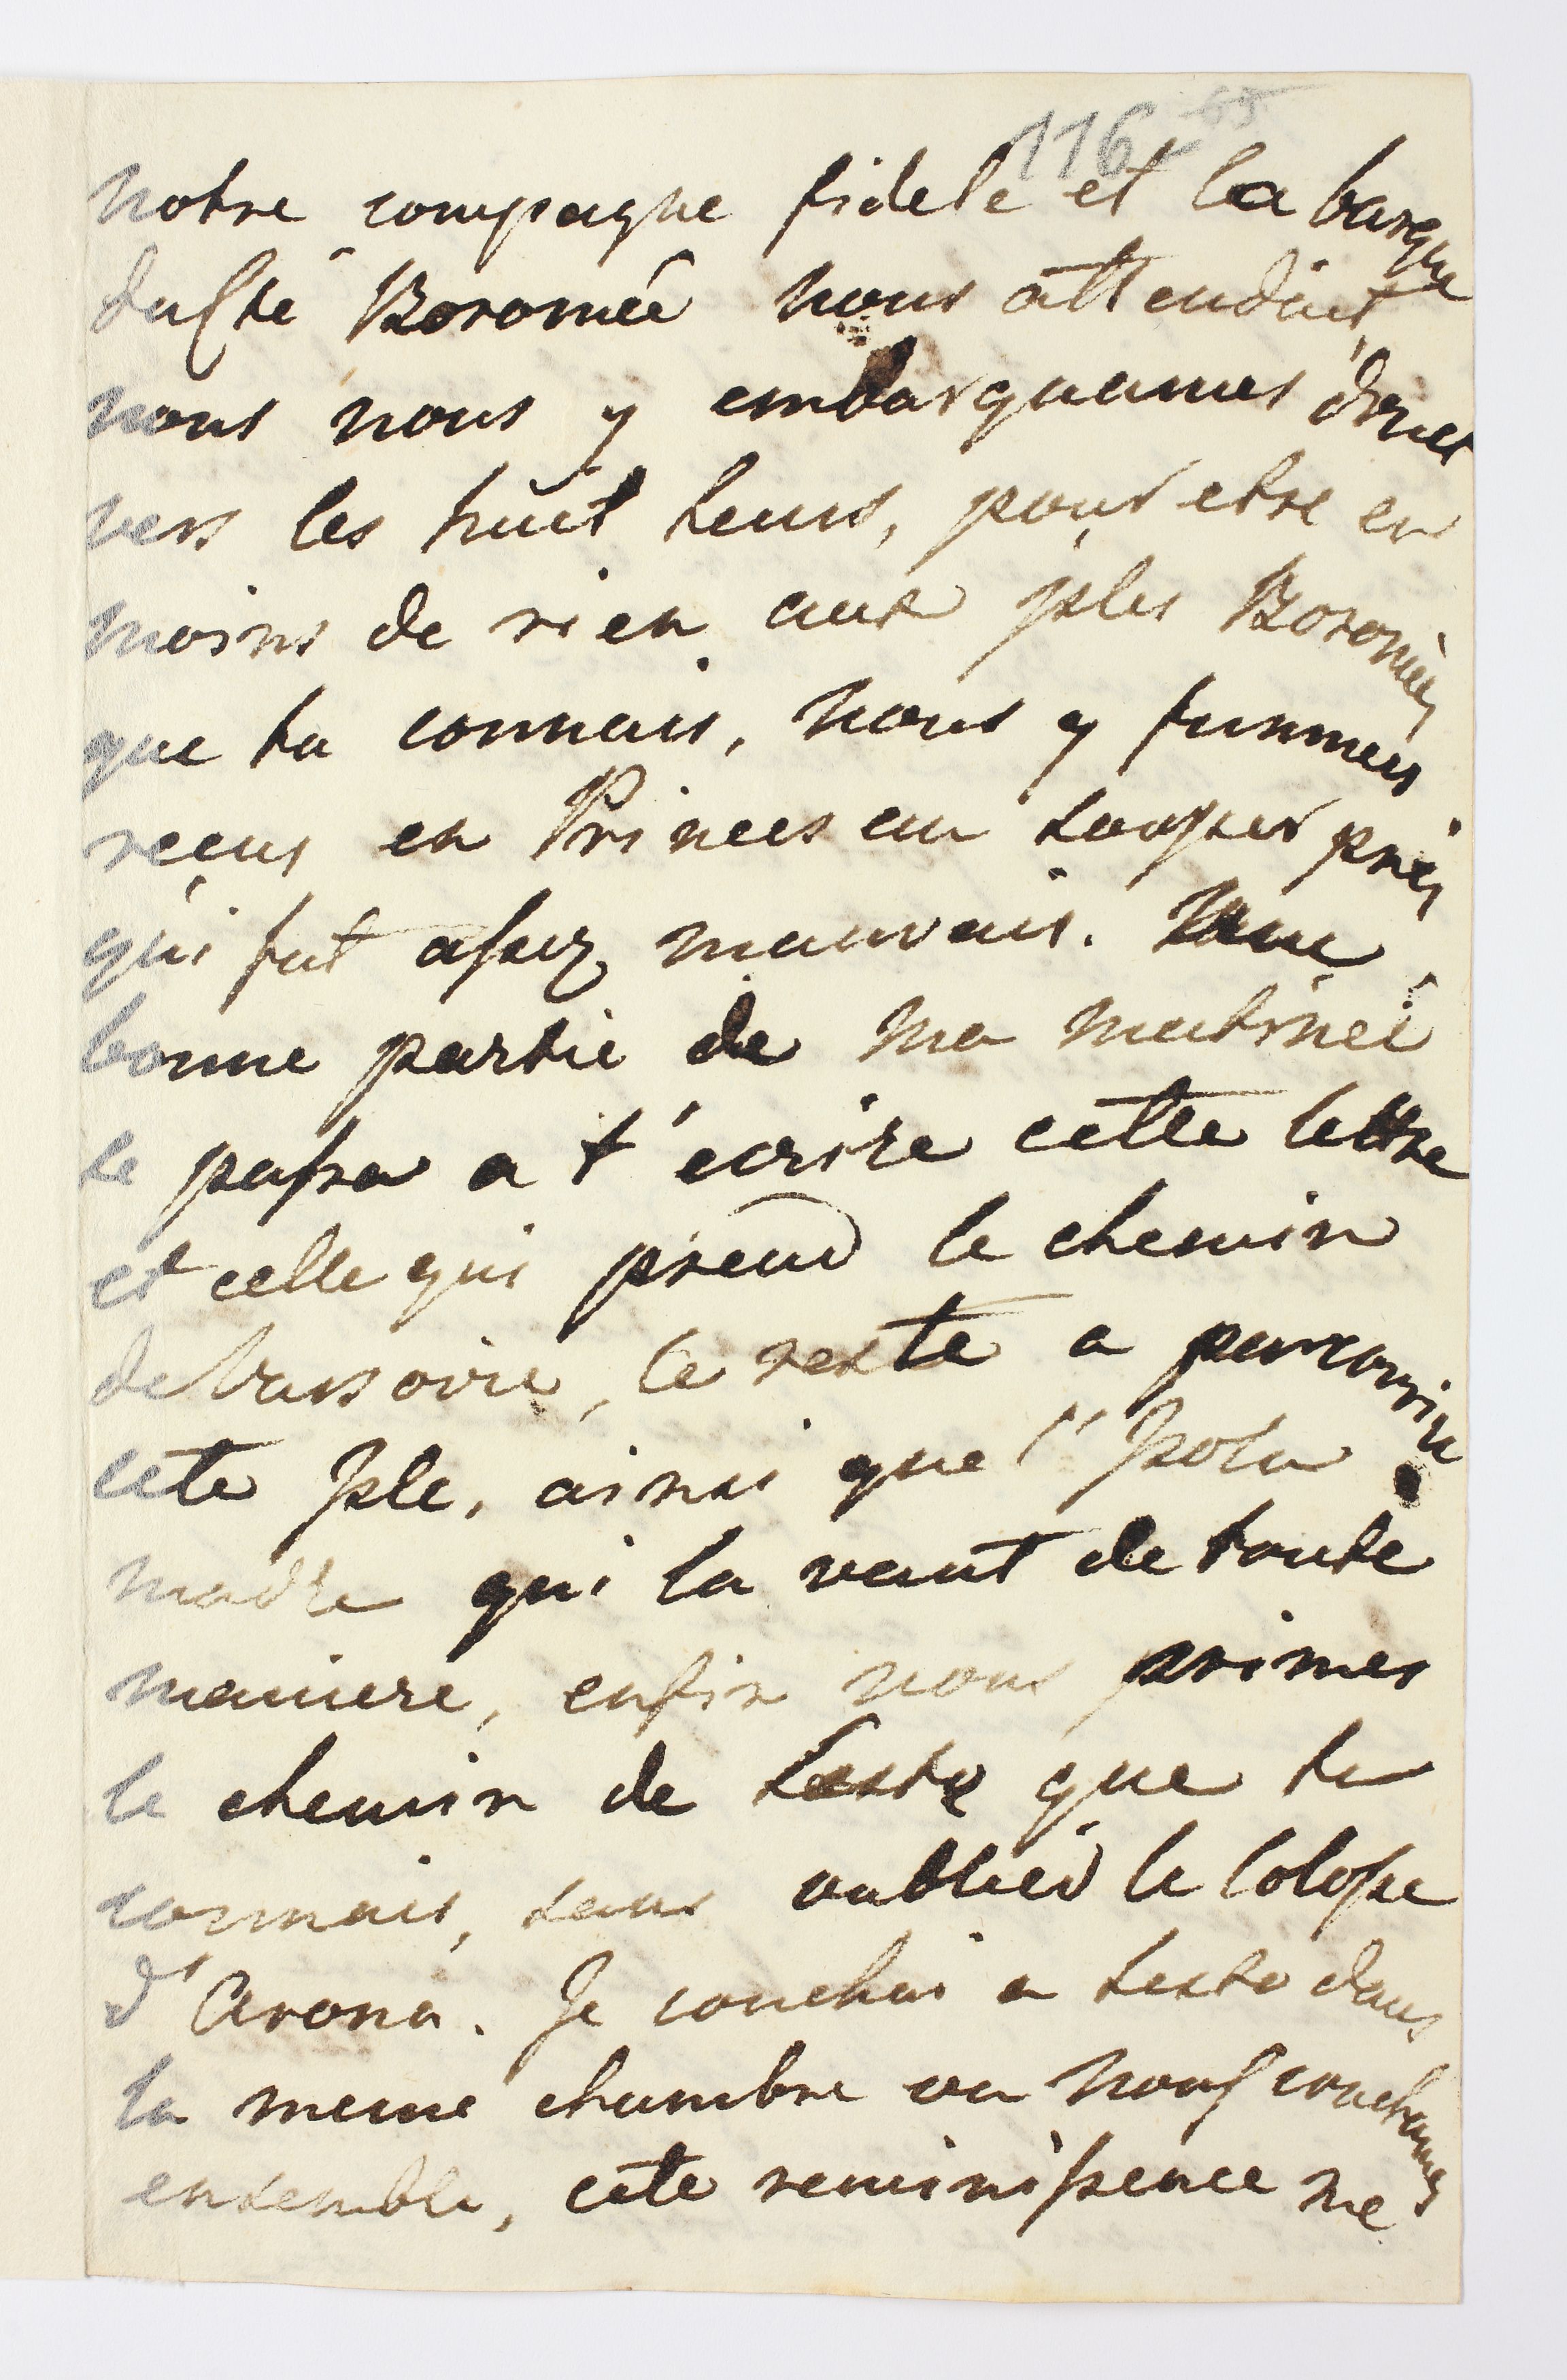 116 65
notre compagne fidele et la barque
du Cte Boromée nous attendait,
nous nous y embarquames donc
vers les huit heurs, pour etre en
moins de rien aux Isles Boromées
que tu connais, nous y fummes
reçus en Princes au souper près
qui fut assez mauvais. Une
bonne partie de ma matinée
se passa a t'ecrire cette lettre
et celle qui prend le chemin
de, le reste a parcourir
cete Isle, ainsi que l'Isola
madre qui la vaut de toute
maniere, enfin nous primes
le chemin de Sesto que tu
connais, sans oublier le Colosse
d'Arona. Je couchai a Sesto dans
la meme chambre ou nous couchames
ensemble, cete reminissence me